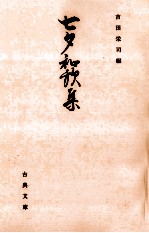 吉田栄司編
七夕和歌集
古典文庫